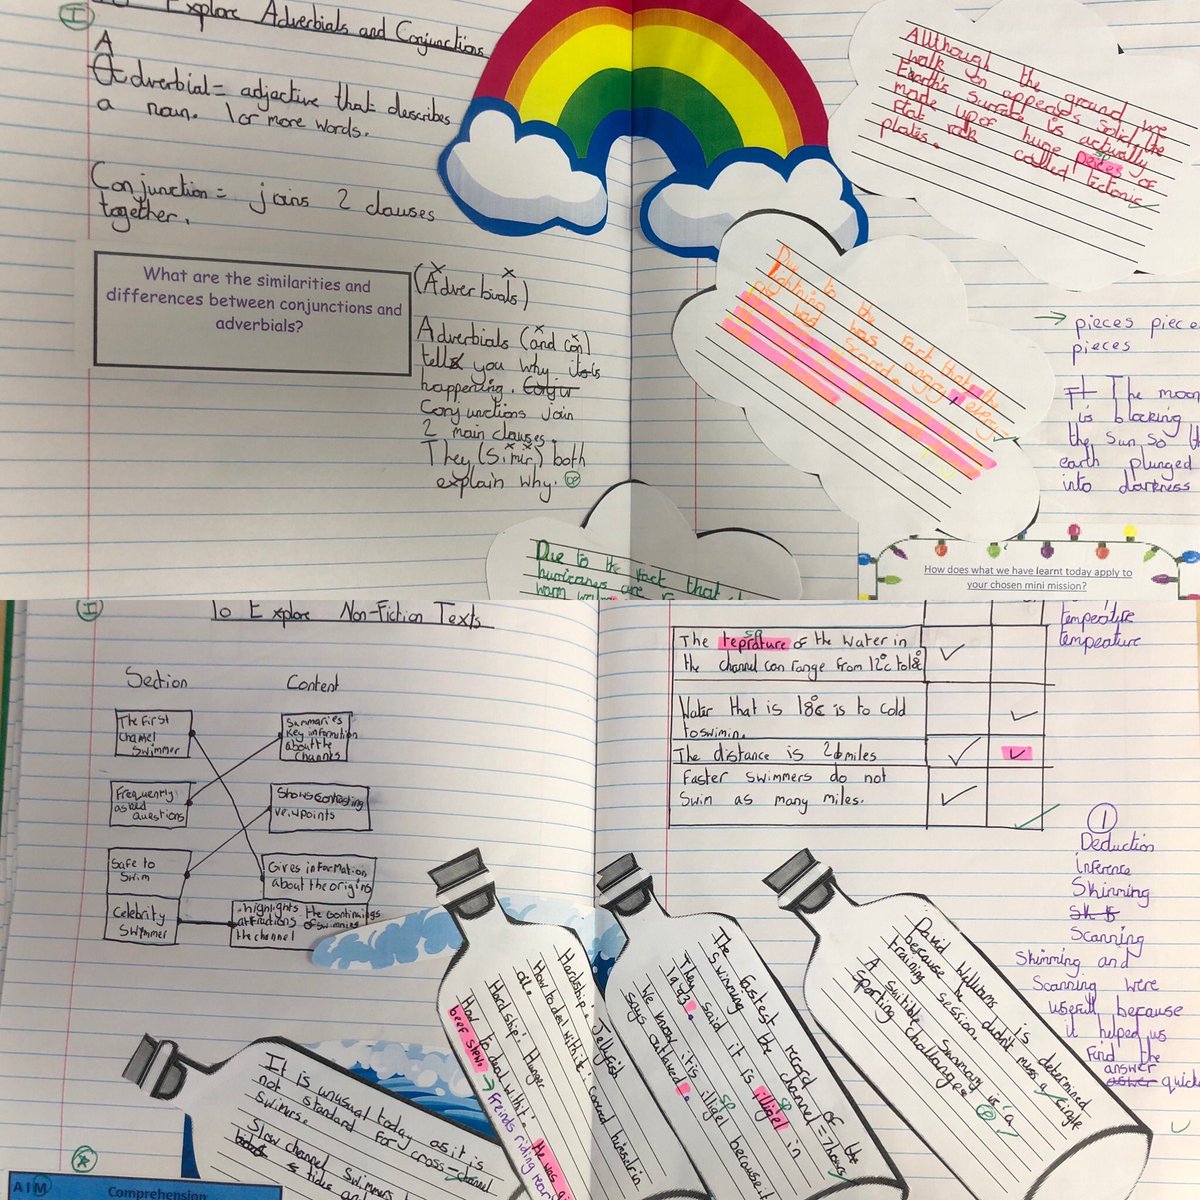 I
To Explore Adverbials and Conjunctions
A
Adverbial = adjective that describes
a noun. 1 or more words.
Conjunction = joins 2 clauses
together.
What are the similarities and
differences between conjunctions and
adverbials?
(Adverbials)
Adverbials (and con)
tell you why it is
happening. Conjur
Conjunctions join
2 main clauses.
They (simir) both
explain why.
Allthough the ground we
walk on appears solid the
Earth's surface is actually
made up of huge peices of
flat rock called tectonic
plates.
sp
Due to the fact that the
lightning was angry, every
had scared.
→ pieces piece
pieces
The moon
is blocking
the sun so th
earth plunged
into darkness
Due to the fact that
hurricanes are
warm
How does what we have learnt today apply to
your chosen mini mission?
I
To Explore Non-Fiction Texts
Section
Content
The first
channel
swimmer
Summaries
key information
about the
channels
Frequently
asked
questions
Shows contrasting
veiwpoints
Safe to
Swim
Gives information
about the origins
Celebrity
Swimmer
highlights the
attractions of
the channel
swimming
temperature
temperature
sp
The teprature of the water in
the channel can range from 12°c to 18°c
Water that is 18°c is to cold
to swim in.
The distance is 26 miles
Faster swimmers do not
swim as many miles.
1
Deduction
inference
Skimming
Scanning
Skimming and
Scanning were
usefull because
it helped us
find the
answer
answer quick
It is unusual today as it is
not standard for cross-channel
swimers.
Slow channel swimmers
tides and
Hardship: Jellyfish
How to deal with it: Covered himself in
oil.
Hardship: Hunger
How to deal with it: He was
beef stew. → Freinds riding near
The fastest record of the
swimming the channel = 7 hours
They said it is illigel in
sp
We know it is illigel because it
sp
says outlawed.
David Williams is determined
because he didn't miss a single
training session.
A suitible summary is 'a
sporting challange'
AIM
Comprehension